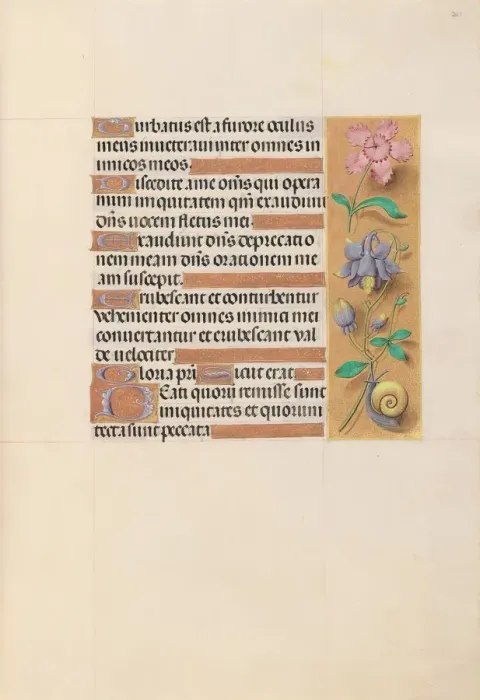 Turbatus est a furore oculus
meus inueteraui inter omnes in
imicos meos.
Discedite a me oms qui opera
mini iniquitatem qm exaudiuit
dns uocem fletus mei.
Exaudiuit dns deprecatio
nem meam dns orationem me
am suscepit.
Erubescant et conturbentur
vehementer omnes inimici mei
conuertantur et erubescant val
de uelociter
Gloria pri Sicut erat
Beati quorum remisse sunt
iniquitates et quorum
tecta sunt peccata